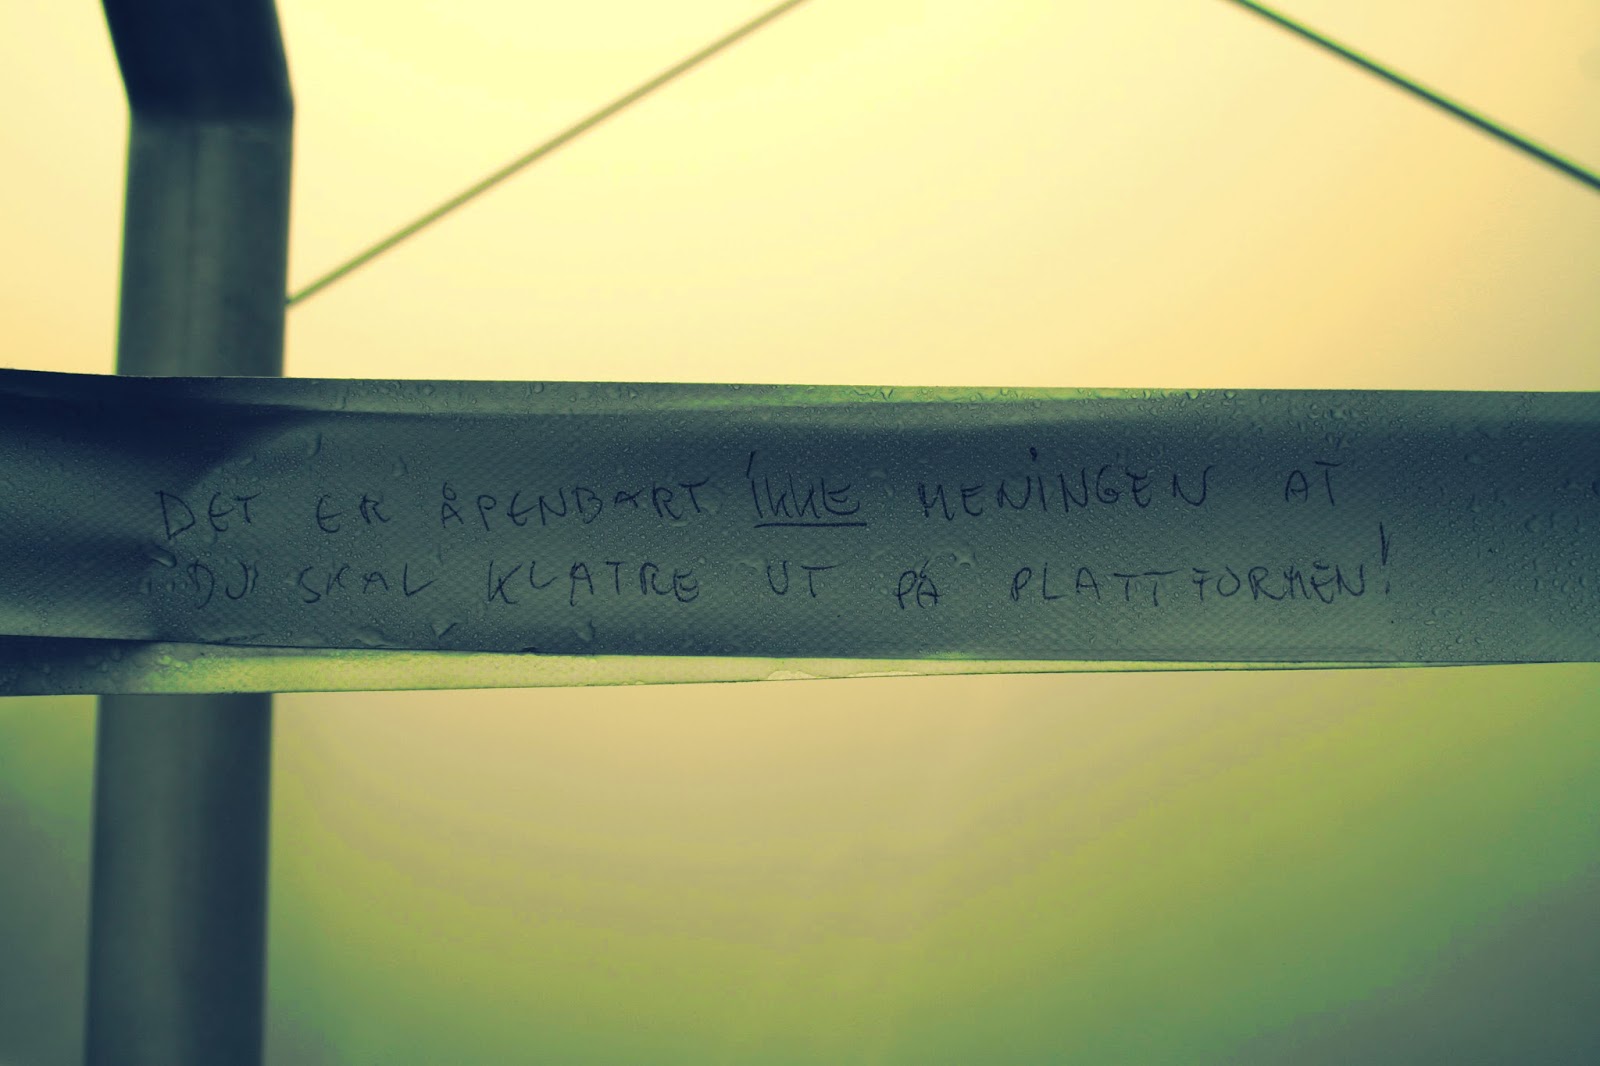 DET ER ÅPENBART IKKE MENINGEN AT
DU SKAL KLATRE UT PÅ PLATTFORMEN!